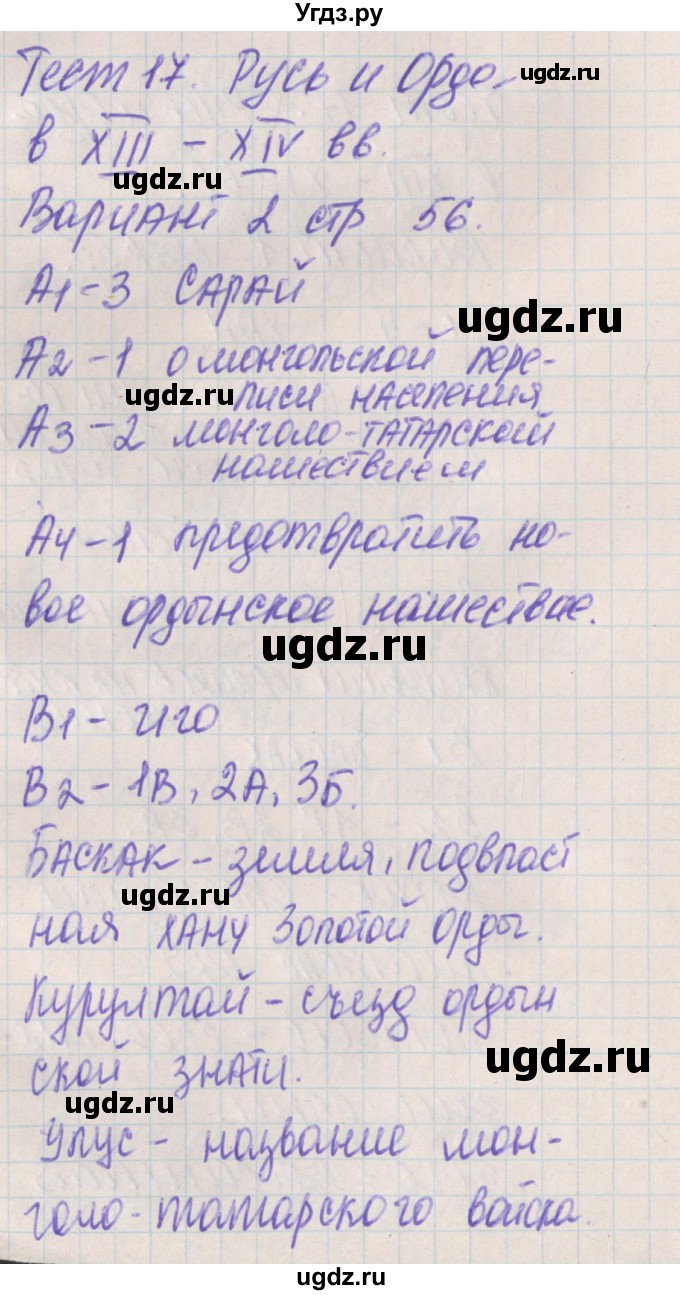 Угдз.ру
Тест 17. Русь и Орда
ugdz.ru
в XIII – XIV вв.
ugdz.ru
Вариант 2 стр 56.
А1-3 САРАЙ
ugdz.ru
А2-1 о монгольской пере-
ugdz.ru
писи населения
А3-2 монголо-татарский
нашествием
А4-1 предотвратить но-
вое ордынское нашествие.
ugdz.ru
В1- иго
В2-1В, 2А, 3Б.
БАСКАК - земля, подвласт
ugdz.ru
ная ХАНУ Золотой орды.
Курултай - съезд ордын
ugdz.ru
ской знати.
ugdz.ru
Улус - название мон-
голо-татарского войска.
ugdz.ru